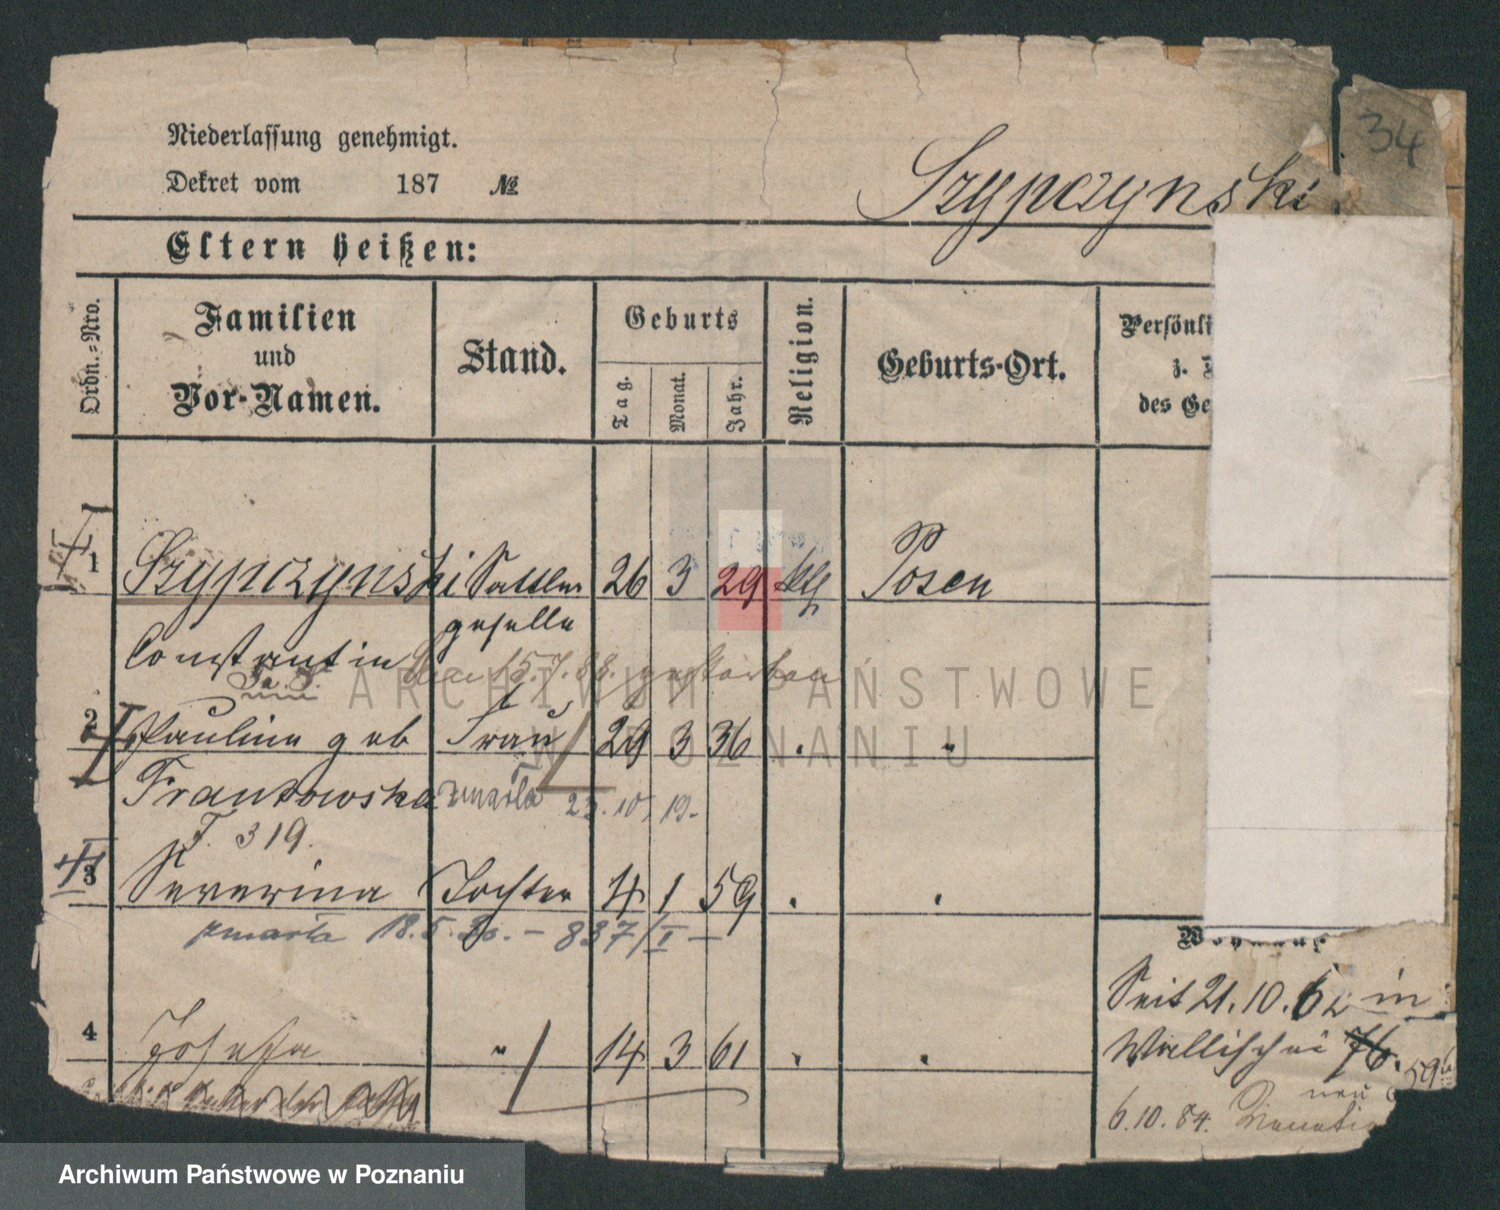 34
Niederlassung genehmigt.
Dekret vom 187 №
Szypczynski.
Eltern heißen:
Ordn.-Nro.
Familien
und
Vor-Namen.
Stand.
Geburts
Tag.
Monat.
Jahr.
Religion.
Geburts-Ort.
Persönli
z.
des Ge
1 Szypczynski Sattler 26 3 29 kth Posen
geselle
Constantin 15.7.88. gestorben
2 Pauline geb Frau 29 3 36 . "
Frankowska zmarła 23.10.19.
F. 319.
3 Severina Tochter 4 1 59 . .
zmarła 18.5.30. – 837/I –
Seit 21.10.62 in
4 Josefa " 14 3 61 . .
Wallischei 76.
neu
6.10.84.
ARCHIWUM PAŃSTWOWE
W POZNANIU
Archiwum Państwowe w Poznaniu